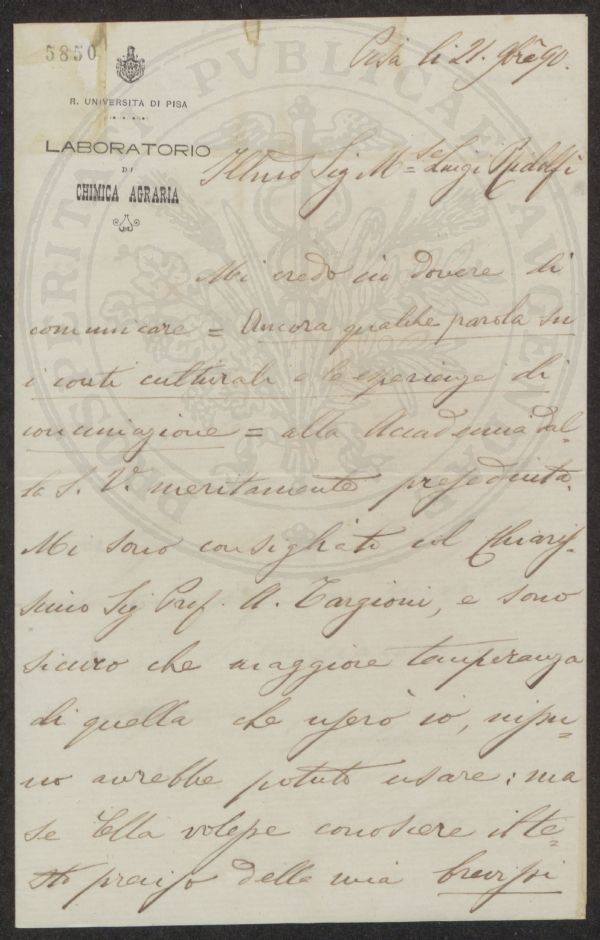 5850
R. UNIVERSITA DI PISA
LABORATORIO
DI
CHIMICA AGRARIA
Pisa li 21. 9bre 90.
Illmo Sig Mse Luigi Ridolfi
Mi credo in dovere di
comunicare = Ancora qualche parola su
i conti culturali e le esperienze di
concimazione = alla Accademia dal-
la S. V. meritamente presieduta.
Mi sono consigliato col Chiaris-
simo Sig Prof. A. Targioni, e sono
sicuro che maggiore temperanza
di quella che userò io, nissu-
no avrebbe potuto usare: ma
se Ella volesse conoscere il te-
sto preciso della mia brevissi
PROSPERITATI PVBLICAE AVGENDAE